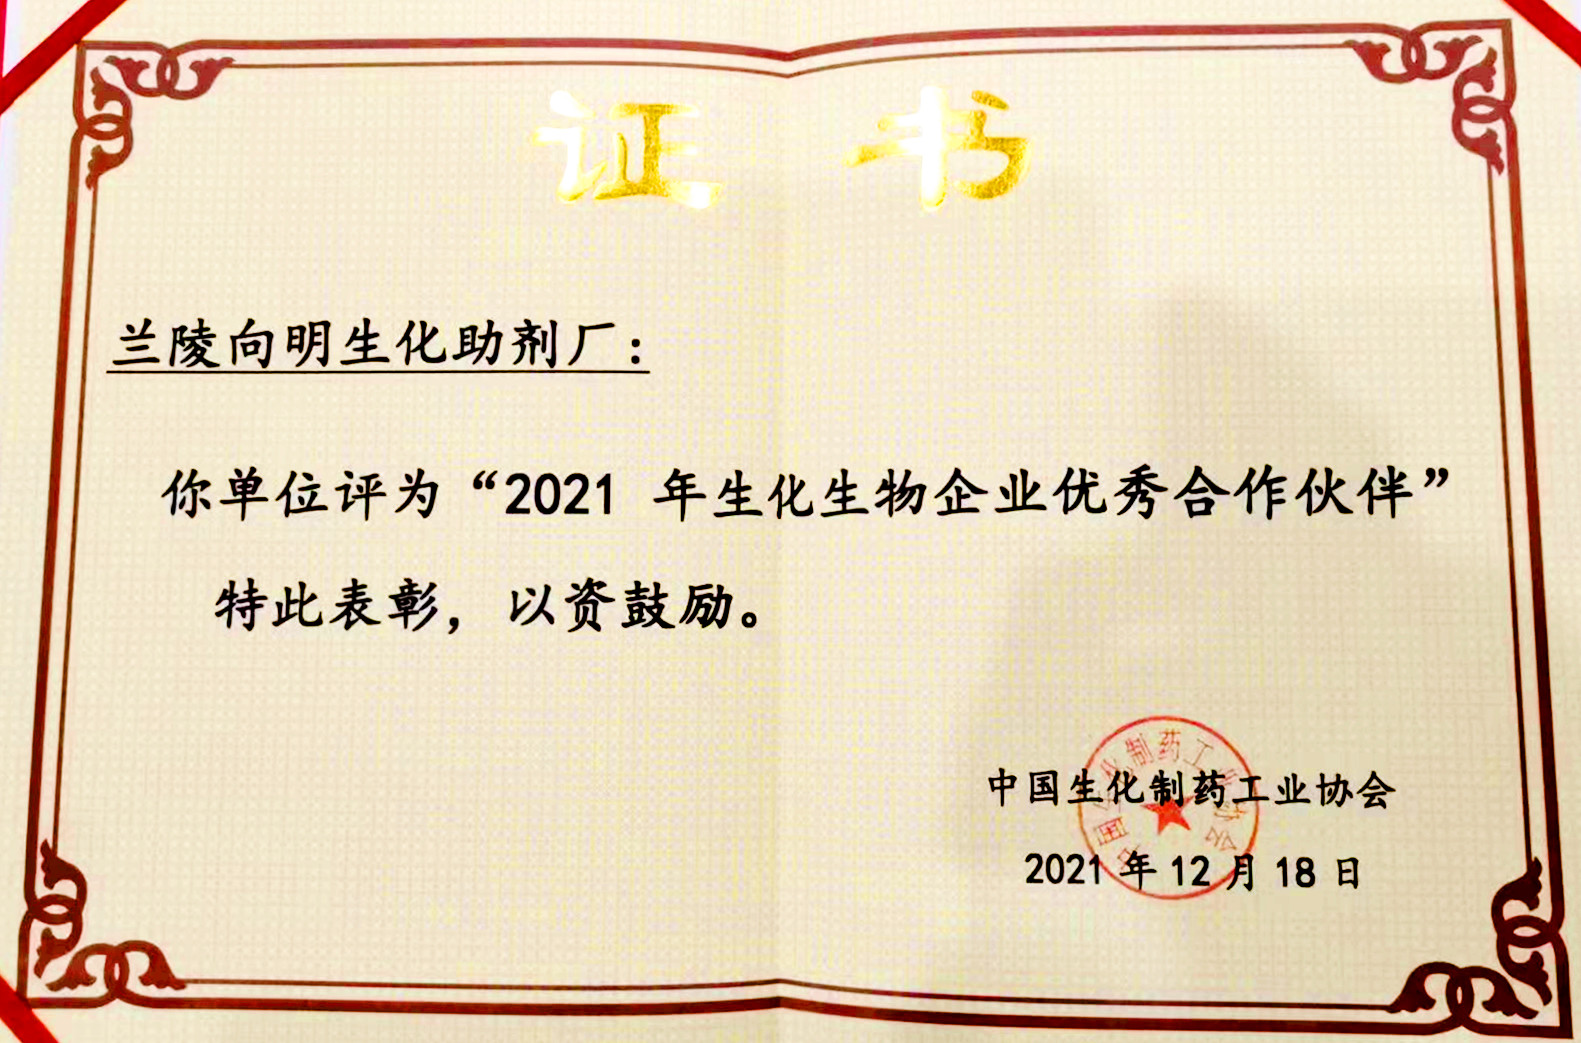 证书
兰陵向明生化助剂厂：
你单位评为“2021 年生化生物企业优秀合作伙伴”
特此表彰，以资鼓励。
中国生化制药工业协会
2021 年 12 月 18 日